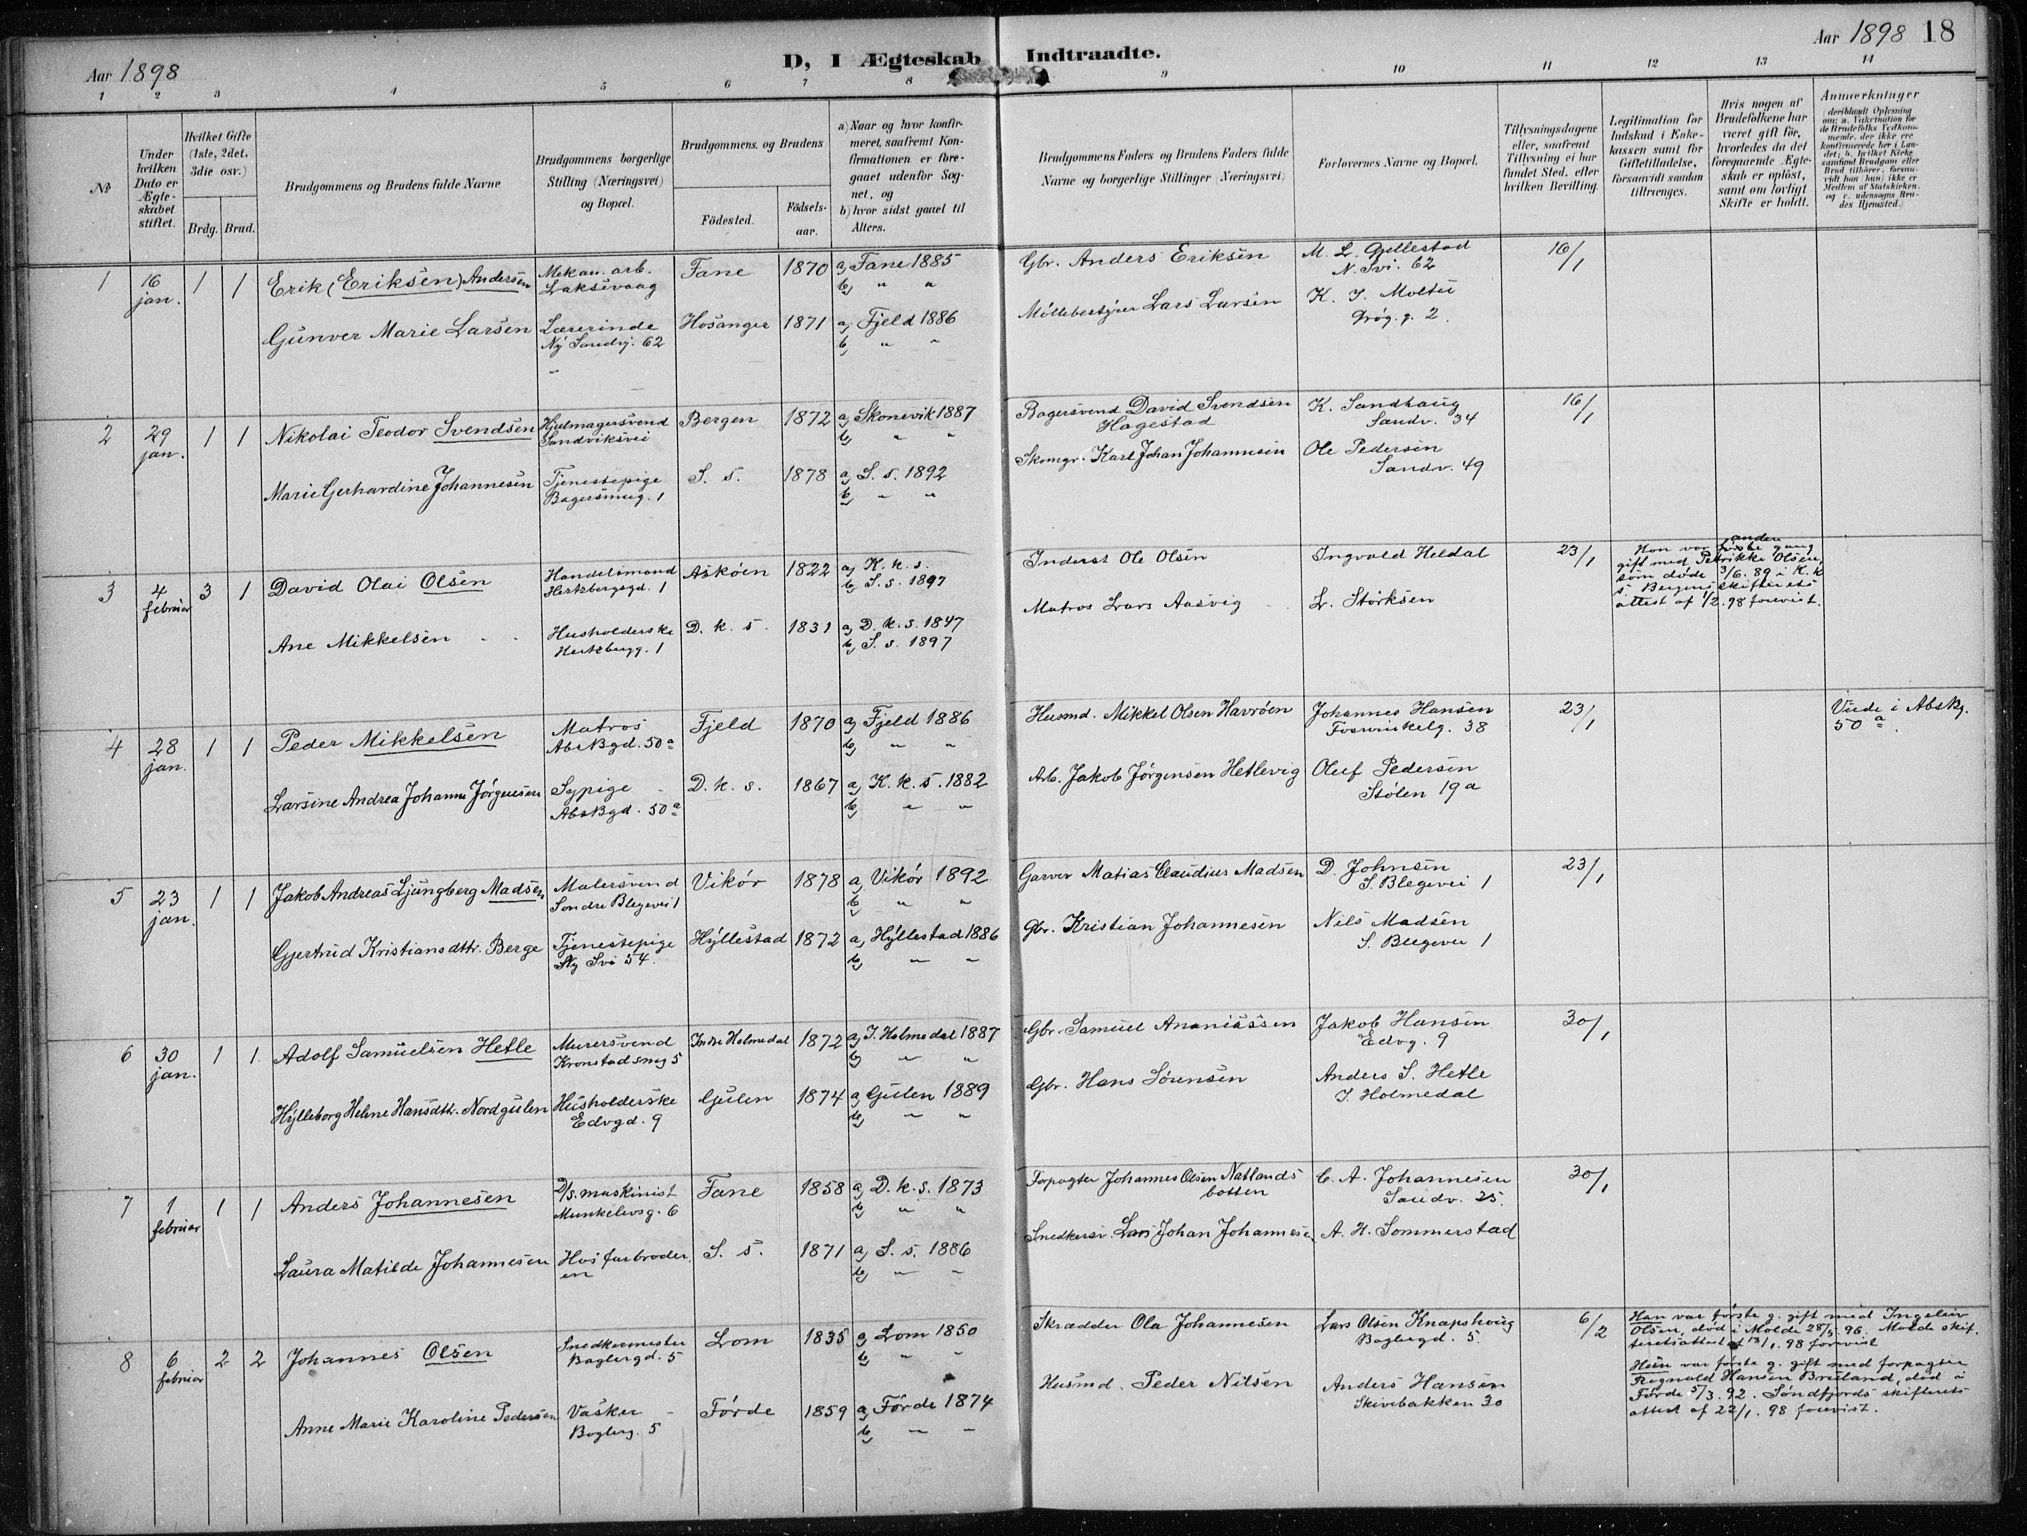 Aar 1898
D, I Ægteskab Indtraadte.
Aar 1898 18
1 2 3 4 5 6 7 8 9 10 11 12 13 14
No
Under hvilken Dato er Ægteskabet stiftet.
Hvilket Gifte (1ste, 2det, 3die osv.)
Brdg. Brud.
Brudgommens og Brudens fulde Navne
Brudgommens borgerlige Stilling (Næringsvei) og Bopæl.
Brudgommens og Brudens
Födested.
Födselsaar.
a) Naar og hvor konfirmeret, saafremt Konfirmationen er foregaaet udenfor Sognet, og
b) hvor sidst gaaet til Alters.
Brudgommens Faders og Brudens Faders fulde Navne og borgerlige Stillinger (Næringsvei)
Forlovernes Navne og Bopæl.
Tillysningsdagene eller, saafremt Tillysning ei har fundet Sted, efter hvilken Bevilling.
Legitimation for Indskud i Enkekassen samt for Giftetilladelse, forsaavidt saadan tiltrænges.
Hvis nogen af Brudefolkene har været gift för, hvorledes da det foregaaende Ægteskab er oplöst, samt om lovligt Skifte er holdt.
Anmærkninger
(deriblandt Oplysning om: a. Vakcination for de Brudefolks Vedkommende, der ikke ere konfirmerede her i Landet; b. hvilket Kirkesamfund Brudgom eller Brud tilhörer, forsaavidt han (hun) ikke er Medlem af Statskirken, og c. udensogns Brudes Hjemsted.)
1 16 jan. 1 1 Erik (Eriksen) Andersen Mekan. arb. Laksevaag Fane 1870 a) Fane 1885 b) " " Gbr. Anders Eriksen M. L. Gjellestad N. Svi. 62 16/1
Gunver Marie Larsen Lærerinde Ny Sandvj. 62 Hosanger 1871 a) Fjeld 1886 b) " " Møllebestyrer Lars Larsen K. J. Moltu 2.
2 29 jan. 1 1 Nikolai Teodor Svendsen Hjulmagersvend Sandviksvei Bergen 1872 a) Skonevik 1887 b) " " Bagersvend David Svendsen Hagestad K. Sandhaug Sandv. 34 16/1
Marie Gerhardine Johannesen Tjenestepige Bagersmug. 1 S. s. 1878 a) S. s. 1892 b) " " Skomgr. Karl Johan Johannesen Ole Pedersen Sandv. 49
3 4 februar 3 1 David Olai Olsen Handelsmand Hertzbergsgd. 1 Askøen 1822 a) K. k. s. b) S. s. 1897 Inderst Ole Olsen Ingvald Heldal 23/1
Han var anden gang gift med Petrikke Olsen, som døde 3/6. 89 i K. k. s. Bergens skifterets attest af 1/2. 98 forevist.
Ane Mikkelsen Husholderske Hertzbergg. 1 D. k. s. 1831 a) D. k. s. 1847 b) S. s. 1897 Matros Lars Aasvig L. Størksen
4 28 jan. 1 1 Peder Mikkelsen Matros AbsBgd. 50a Fjeld 1870 a) Fjeld 1886 b) " " Husmd. Mikkel Olsen Havrøen Johannes Hansen Fosvinkelg. 38 23/1 Viede i Absbg. 50a.
Larsine Andrea Johanne Jørgensen Sypige AbsBgd. 50a D. k. s. 1867 a) K. k. s. 1882 b) " " Arb. Jakob Jørgensen Hetlevig Oluf Pedersen Stølen 19a
5 23 jan. 1 1 Jakob Andreas Ljungberg Madsen Malersvend Søndre Blegevei 1 Vikør 1878 a) Vikør 1892 b) " " Garver Matias Claudius Madsen D. Johnsen S. Blegevei 1 23/1
Gjertrud Kristiansdttr. Berge Tjenestepige Ny Svi 54. Hyllestad 1872 a) Hyllestad 1886 b) " " Gbr. Kristian Johannesen Nils Madsen S. Blegevei 1
6 30 jan. 1 1. Adolf Samuelsen Hetle Murersvend Kronstadsmug 5 Indre Holmedal 1872 a) I. Holmedal 1887 b) " " Gbr. Samuel Ananiassen Jakob Hansen Edvg. 9 30/1
Hylleborg Helene Hansdtr. Nordgulen Husholderske Edvgd. 9 Gulen 1874 a) Gulen 1889 b) " " Gbr. Hans Sørensen Anders S. Hetle I. Holmedal
7 1 februar 1 1 Anders Johannesen D/s. maskinist Munkelivsg. 6 Fane 1858 a) D. k. s. 1873 b) " " Forpagter Johannes Olsen Natlandsbotten C. A. Johannesen Sandv. 25. 30/1
Laura Matilde Johannesen Hos farbroderen S. s. 1871 a) S. s. 1886 b) " " Snedkersv. Lars Johan Johannesen A. H. Sommerstad
8 6 februar 2 2 Johannes Olsen Snedkermester Baglergd. 5 Lom 1835 a) Lom 1850 b) " " Skrædder Ola Johannesen Lars Olsen Knapshoug Baglergd. 5. 6/2
Han var første g. gift med Ingeleiv Olsen, død i Molde 28/5 96. Molde skifteretsattest af 13/1. 98 forevist
Anne Marie Karoline Pedersen Vasker Baglerg. 5 Førde 1859 a) Førde 1874 b) " " Husmd. Peder Nilsen Anders Hansen Skivebakken 30
Hun var første g. gift med forpagter Rognald Hansen Breiland, død i Førde 5/3. 92. Søndfjords skifteretsattest af 22/1. 98 forevist.